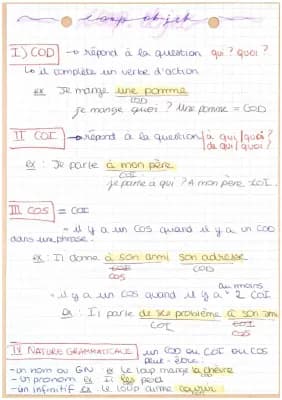 comp objet
I) COD → répond à la question qui ? quoi ?
↳ il complète un verbe d'action
ex Je mange une pomme
COD
je mange quoi ? Une pomme = COD
II COI → répond à la question à qui / quoi ?
de qui / quoi ?
ex : Je parle à mon père
COI
je parle à qui ? A mon père COI.
III COS = COI
- il y a un COS quand il y a un COD
dans une phrase.
ex : Il donne à son ami son adresse
COI COD
COS
au moins
- il y a un COS quand il y a 2 COI
Ex : Il parle de ses problème à son ami
COI COI
COS
IV NATURE GRAMMATICALE un COD ou COI ou COS
peut-être..
- un nom ou GN ex le loup mange la chèvre
- un pronom ex Il les perd
- un infinitif ex le loup aime courir